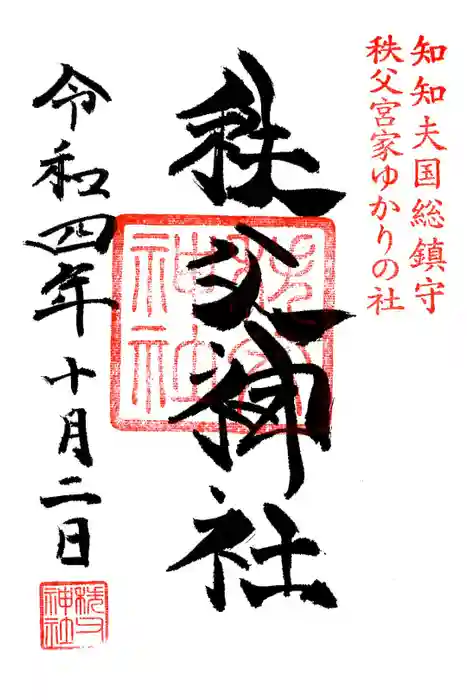 知知夫国総鎮守
秩父宮家ゆかりの社
秩父神社
令和四年十月二日
秩父神社
秩父神社